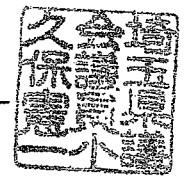 埼玉県議
会議員小
久保憲一